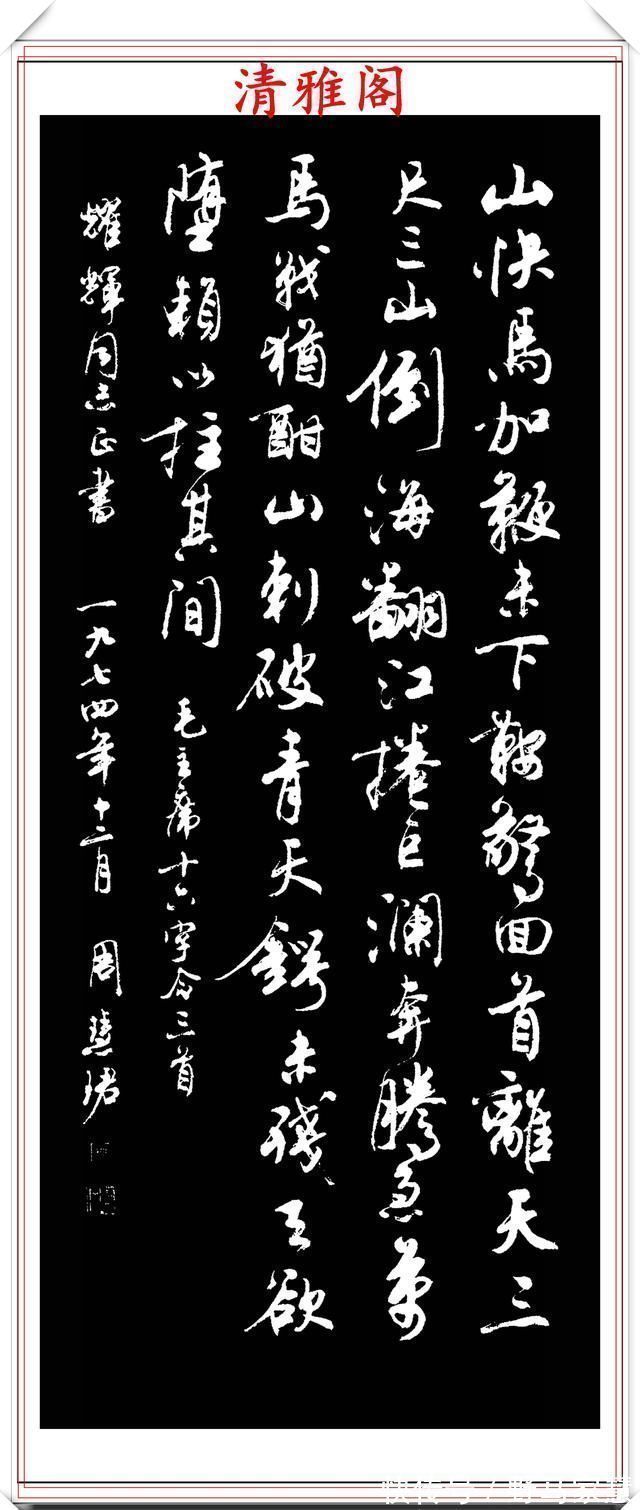 清雅阁
山快馬加鞭未下鞍驚回首離天三
尺三山倒海翻江捲巨瀾奔騰急萬
馬戰猶酣山刺破青天鍔未殘天欲
墮賴以拄其間
毛主席十六字令三首
耀輝同志正書 一九七四年十二月 周慧珺
快传号